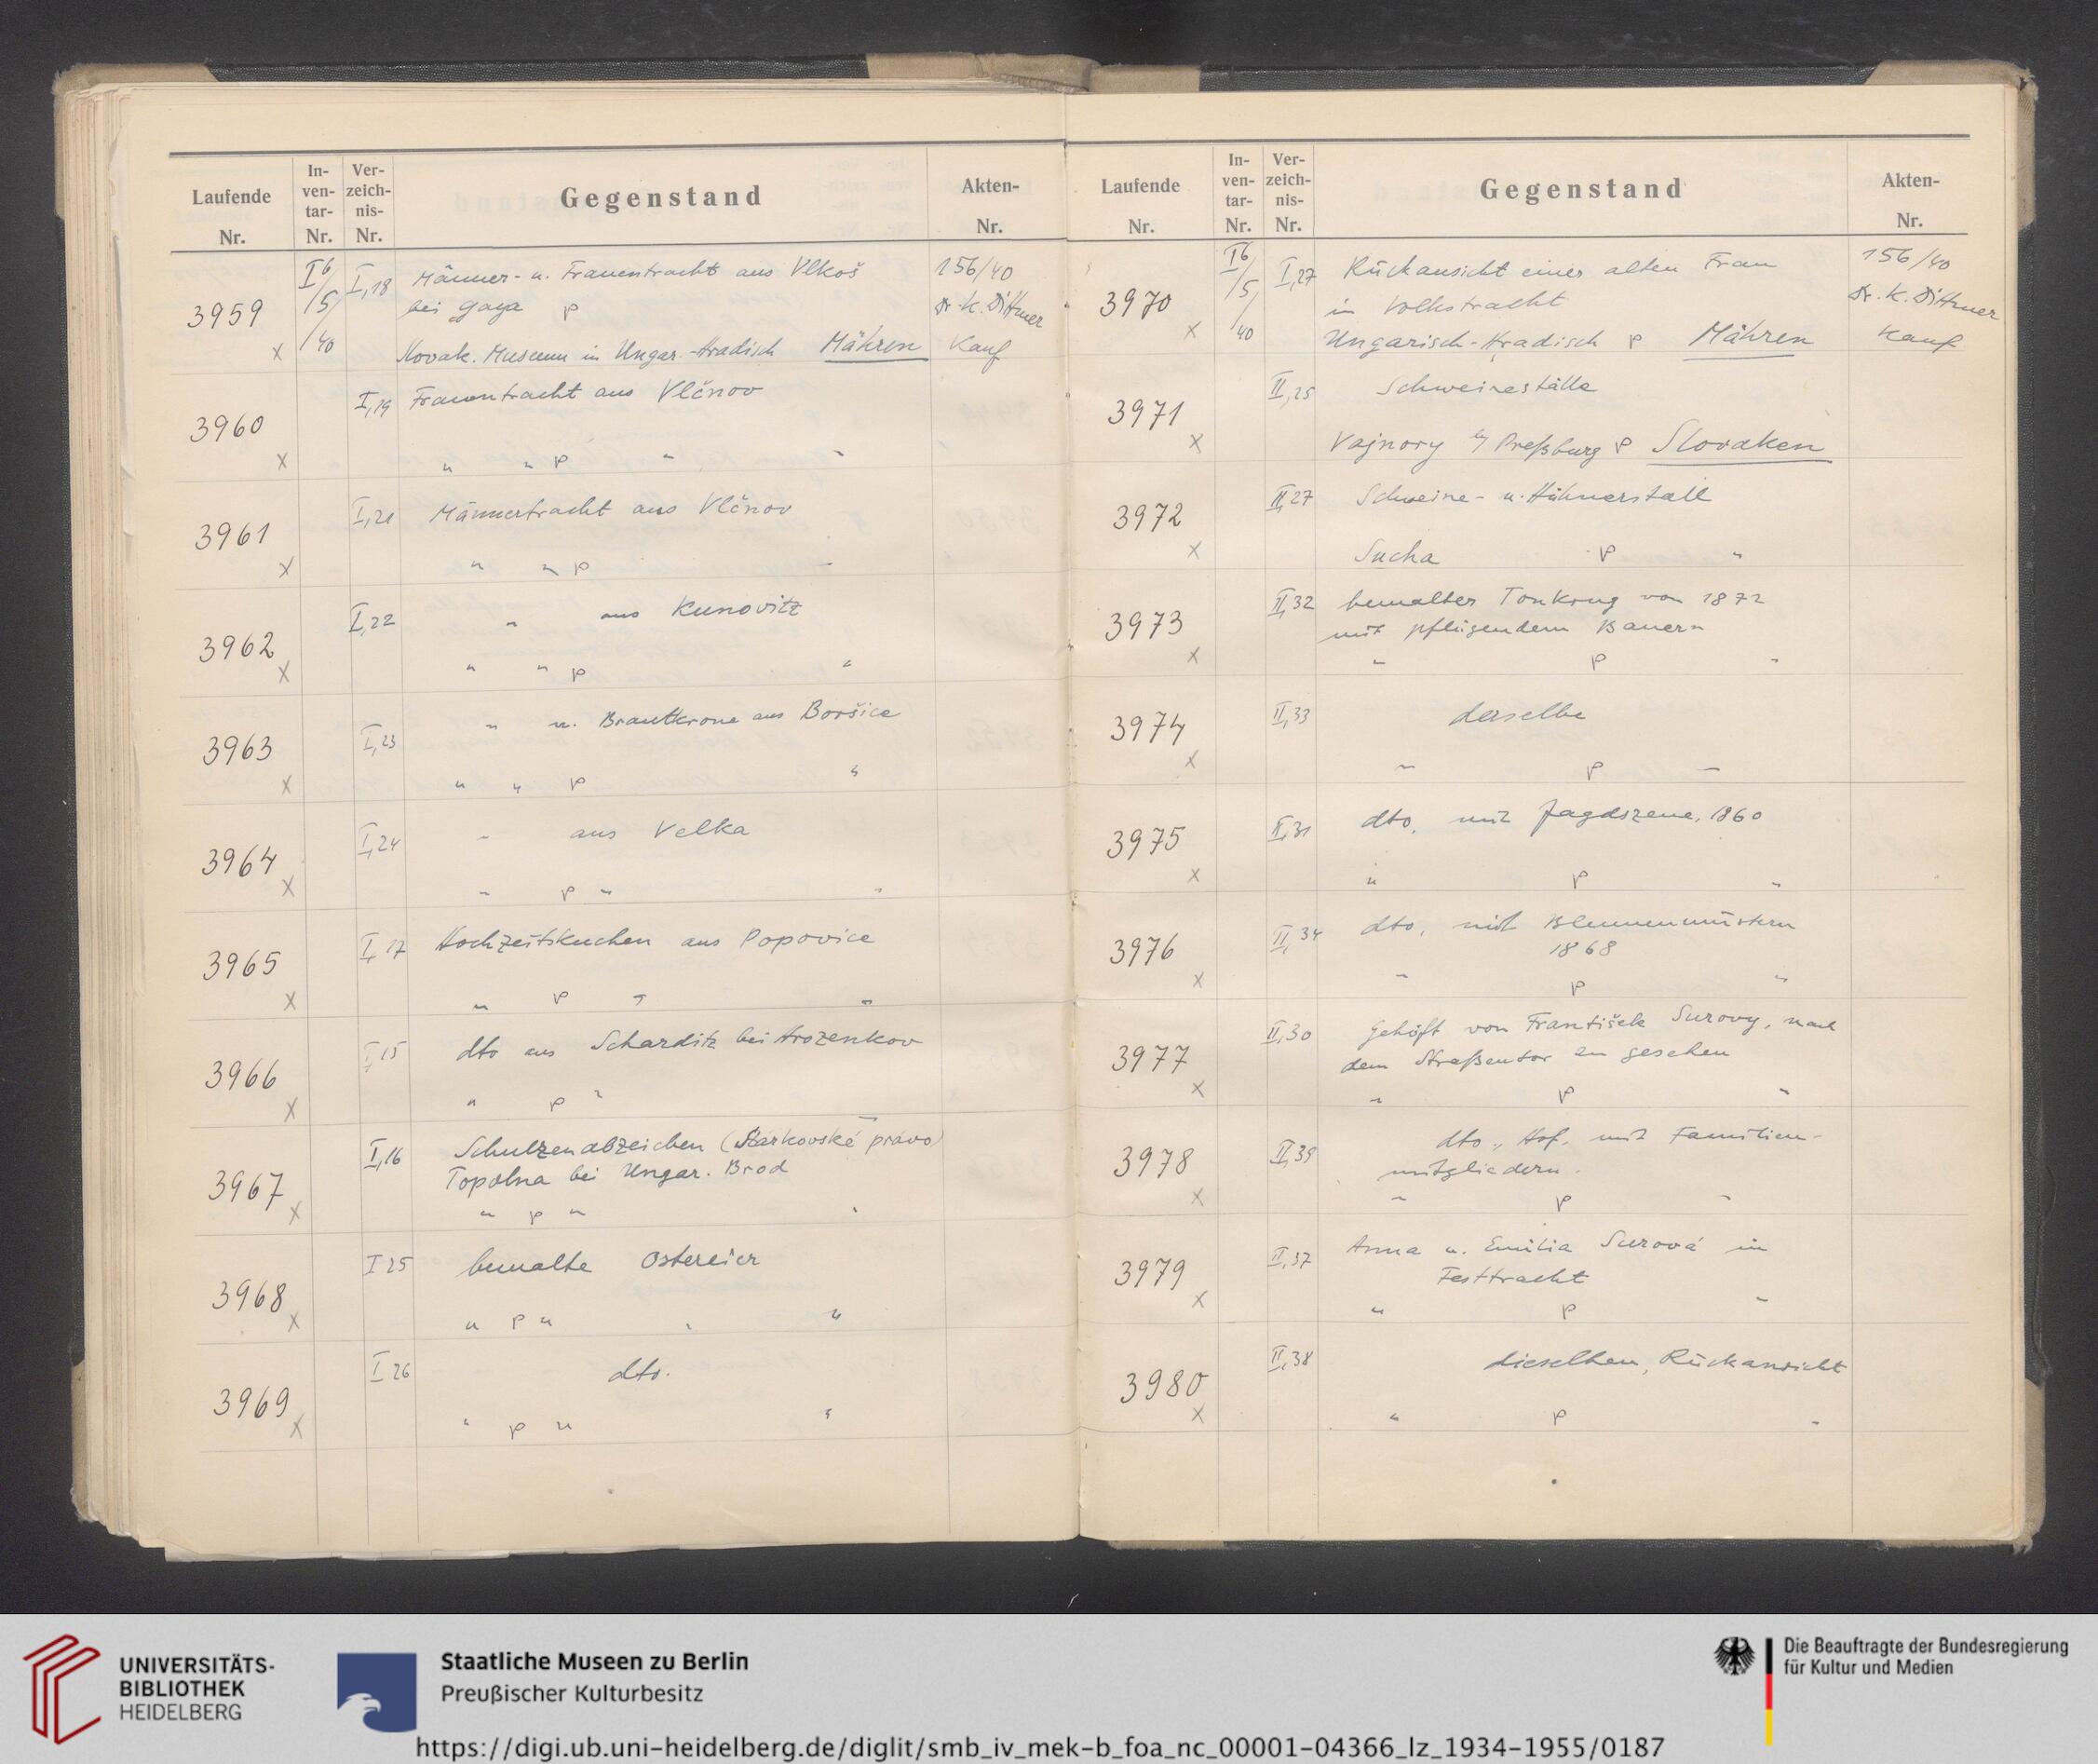 Laufende Nr. In-ven-tar-Nr. Ver-zeich-nis-Nr. Gegenstand Akten-Nr.
3959 x I 6/5/40 I,18 Männer- u. Frauentracht aus Vlkoš 156/40
bei Gaya p Dr. K. Dittmer
Slovak. Museum in Ungar.-Hradisch Mähren Kauf
3960 x I,19 Frauentracht aus Vlčnov
" " p " "
3961 x I,21 Männertracht aus Vlčnov
" " p "
3962 x I,22 " aus Kunovitz
" " p "
3963 x I,23 " u. Brautkrone aus Boršice
" " p "
3964 x I,24 " aus Velka
" p " "
3965 x I,17 Hochzeitskuchen aus Popovice
" p " "
3966 x I,15 dto aus Scharditz bei Hrozenkov
" p "
3967 x I,16 Schulzenabzeichen (Stárkovské právo)
Topolna bei Ungar. Brod
" p " "
3968 x I 25 bemalte Ostereier
" p " " "
3969 x I 26 dto.
" p " "
Laufende Nr. In-ven-tar-Nr. Ver-zeich-nis-Nr. Gegenstand Akten-Nr.
3970 x I 6/5/40 I,27 Rückansicht einer alten Frau 156/40
in Volkstracht Dr. K. Dittmer
Ungarisch-Hradisch p Mähren Kauf
3971 x II,25 Schweineställe
Vajnory b/ Preßburg p Slovaken
3972 x II,27 Schweine- u. Hühnerstall
Sucha p "
3973 x II,32 bemalter Tonkrug von 1872
mit pflügendem Bauern
" p "
3974 x II,33 derselbe
" p "
3975 x II,31 dto, mit Jagdszene, 1860
" p "
3976 x II,34 dto, mit Blumenmustern
1868
" p "
3977 x II,30 Gehöft von František Surovy, nach
dem Straßentor zu gesehen
" p "
3978 x II,39 dto., Hof, mit Familien-
mitgliedern.
" p "
3979 x II,37 Anna u. Emilia Surová in
Festtracht
" p "
3980 x II,38 dieselben, Rückansicht
" p "
UNIVERSITÄTS-
BIBLIOTHEK
HEIDELBERG
Staatliche Museen zu Berlin
Preußischer Kulturbesitz
Die Beauftragte der Bundesregierung
für Kultur und Medien
https://digi.ub.uni-heidelberg.de/diglit/smb_iv_mek-b_foa_nc_00001-04366_lz_1934-1955/0187